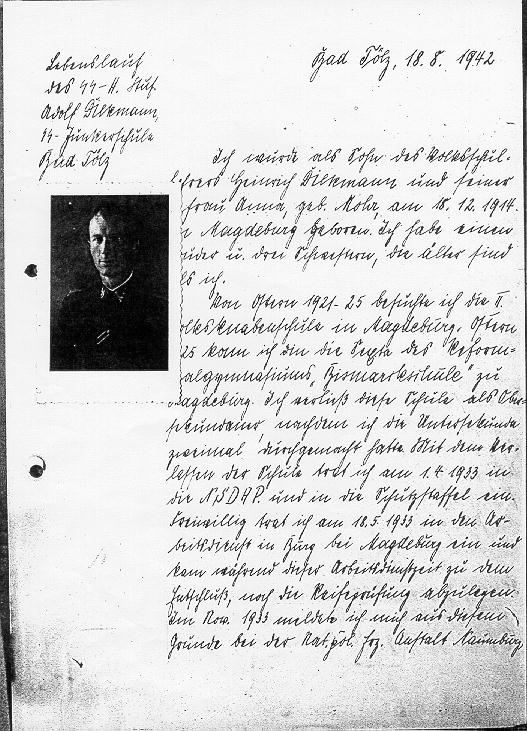 Bad Tölz, 18.8. 1942
Lebenslauf
des SS-H. Stuf.
Adolf Diekmann,
SS-Junkerschule
Bad Tölz
Ich wurde als Sohn des Volksschul-
lehrers Heinrich Diekmann und seiner
Frau Anna, geb. Mohr, am 18.12.1914.
n Magdeburg geboren. Ich habe einen
ruder u. drei Schwestern, die älter sind
ls ich.
Von Ostern 1921-25 besuchte ich die II.
olksknabenschule in Magdeburg. Ostern
25 kam ich in die Sexta des Reform-
algymnasiums „Bismarckschule" zu
agdeburg. Ich verließ diese Schule als Ober-
sekundaner nachdem ich die Untersekunda
zweimal durchgemacht hatte. Mit dem Ver-
lassen der Schule trat ich am 1.4.1933 in
die NSDAP. und in die Schutzstaffel ein.
Freiwillig trat ich am 18.5.1933 in den Ar-
beitsdienst in Burg bei Magdeburg ein und
kam während dieser Arbeitsdienstzeit zu dem
Entschluß, noch die Reifeprüfung abzulegen.
Im Nov. 1933 meldete ich mich aus diesem
Grunde bei der Nat. pol. Erz. Anstalt Naumburg